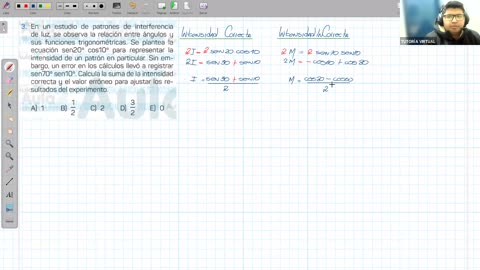 3. En un estudio de patrones de interferencia
de luz, se observa la relación entre ángulos y
sus funciones trigonométricas. Se plantea la
ecuación sen20° cos10° para representar la
intensidad de un patrón en particular. Sin em-
bargo, un error en los cálculos llevó a registrar
sen70° sen10°. Calcula la suma de la intensidad
correcta y el valor erróneo para ajustar los re-
sultados del experimento.
A) 1 B) 1/2 C) 2 D) 3/2 E) 0
Intensidad Correcta
2I = 2 sen20 cos10
2I = sen30 + sen10
I = sen30 + sen10
2
Intensidad InCorrecta
2M = 2 sen70 sen10
2M = - cos80 + cos60
M = cos60 - cos80
2
TUTORÍA VIRTUAL